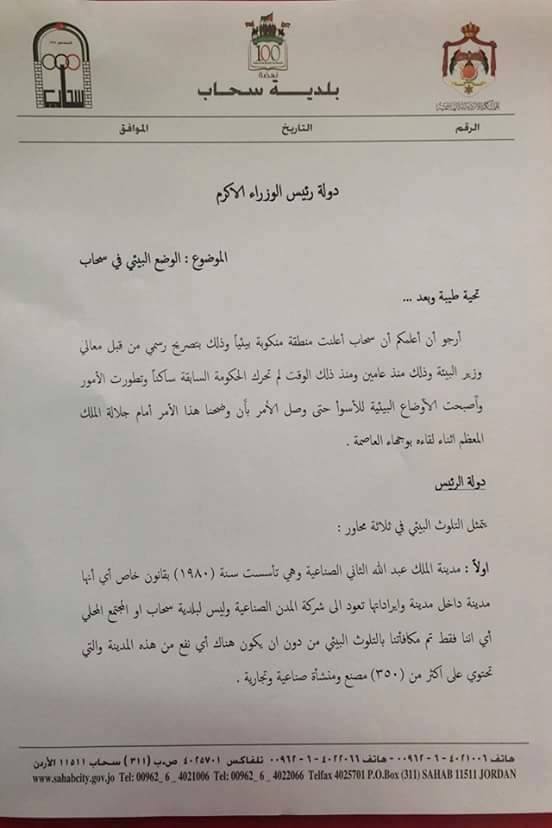 سحاب
100
نهضة
بلدية سحاب
الرقم
التاريخ
الموافق
دولة رئيس الوزراء الاكرم
الموضوع : الوضع البيئي في سحاب
تحية طيبة وبعد ...
أرجو أن أعلمكم أن سحاب أعلنت منطقة منكوبة بيئياً وذلك بتصريح رسمي من قبل معالي
وزير البيئة وذلك منذ عامين ومنذ ذلك الوقت لم تحرك الحكومة السابقة ساكناً وتطورت الأمور
وأصبحت الأوضاع البيئية للأسوأ حتى وصل الأمر بأن وضحنا هذا الأمر أمام جلالة الملك
المعظم اثناء لقاءه بوجهاء العاصمة .
دولة الرئيس
يتمثل التلوث البيئي في ثلاثة محاور :
اولاً : مدينة الملك عبد الله الثاني الصناعية وهي تأسست سنة (١٩٨٠) بقانون خاص أي أنها
مدينة داخل مدينة وايراداتها تعود الى شركة المدن الصناعية وليس لبلدية سحاب او المجتمع المحلي
أي اننا فقط تم مكافأتنا بالتلوث البيئي من دون ان يكون هناك أي نفع من هذه المدينة والتي
تحتوي على اكثر من (٣٥٠) مصنع ومنشأة صناعية وتجارية .
هاتف ٤٠٢١٠٠٦ - ٦ - ٠٠٩٦٢ - هاتف ٤٠٢٢٠٦٦ - ٦ - ٠٠٩٦٢ تلفاكس ٤٠٢٥٧٠١ ص.ب (٣١١) سحاب ١١٥١١ الأردن
www.sahabcity.gov.jo Tel: 00962_ 6 _ 4021006 Tel: 00962_ 6 _ 4022066 Telfax 4025701 P.O.Box (311) SAHAB 11511 JORDAN